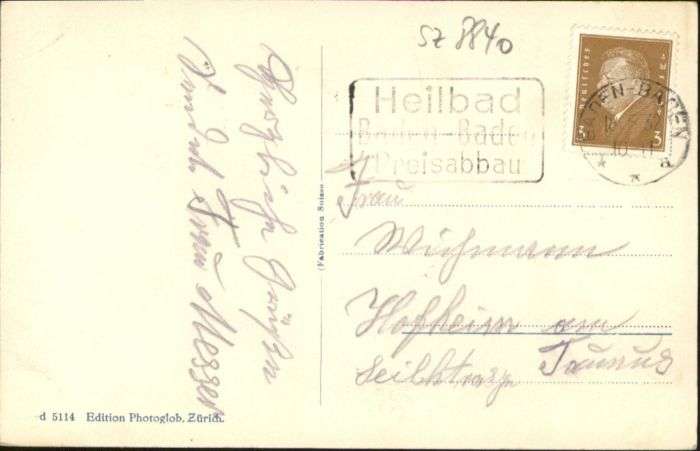 SZ 8840
Heilbad
Baden-Baden
Preisabbau
BADEN-BADEN
3 3
Herzliche Grüße
Frau Messer
(Fabrication Suisse)
Frau
Wichmann
Hofheim am
Taunus
d 5114 Edition Photoglob, Zürich.